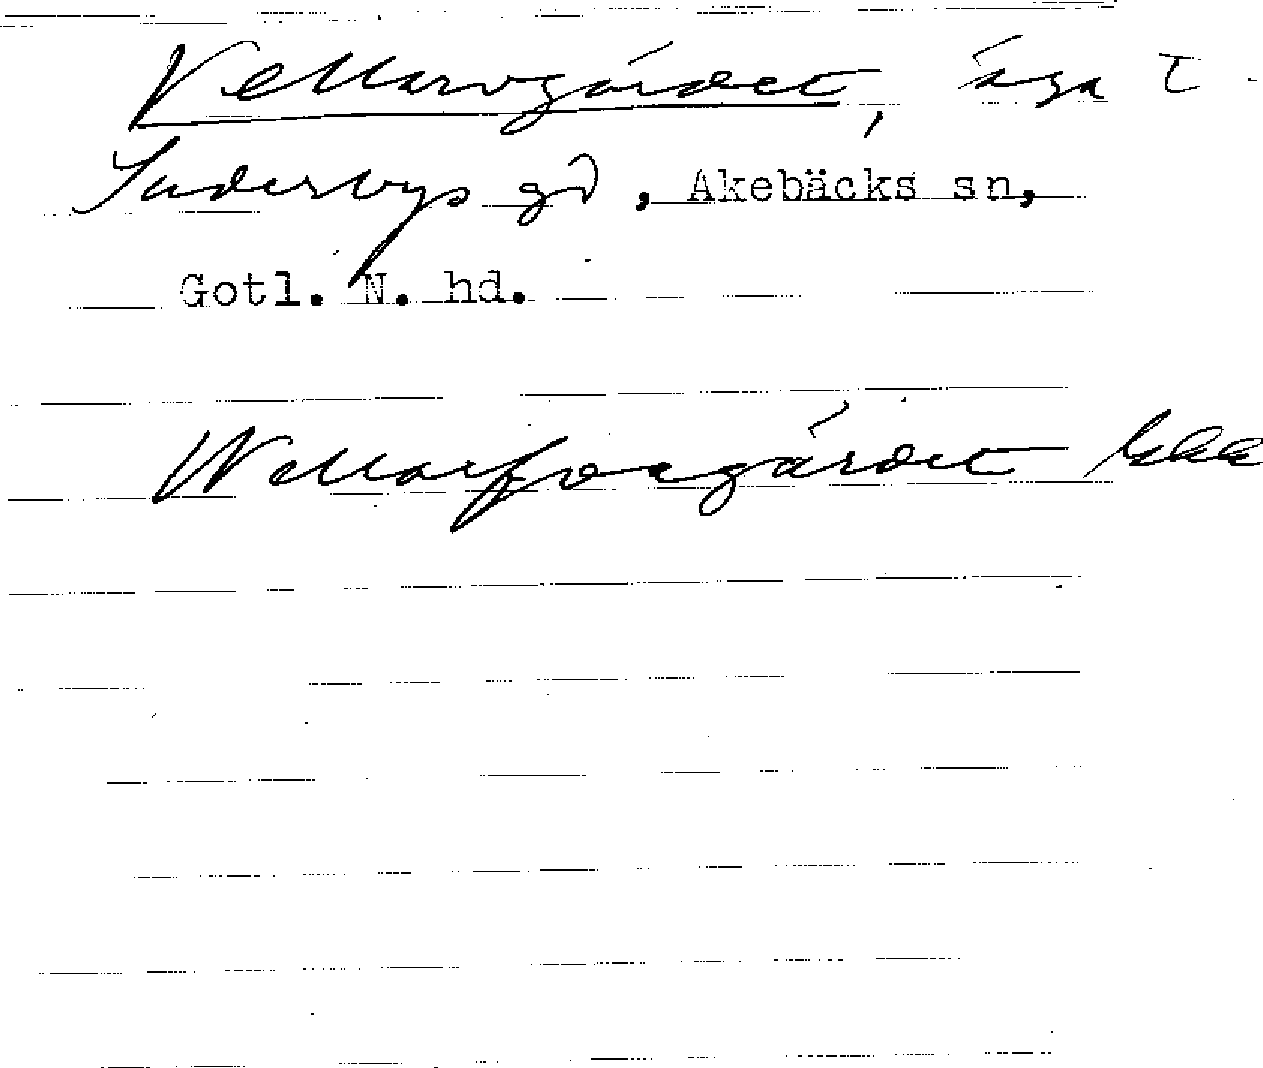 Vellarvgärdet, äga t.
Suderbys gd, Akebäcks sn,
Gotl. N. hd.
Wellarfvegärdet